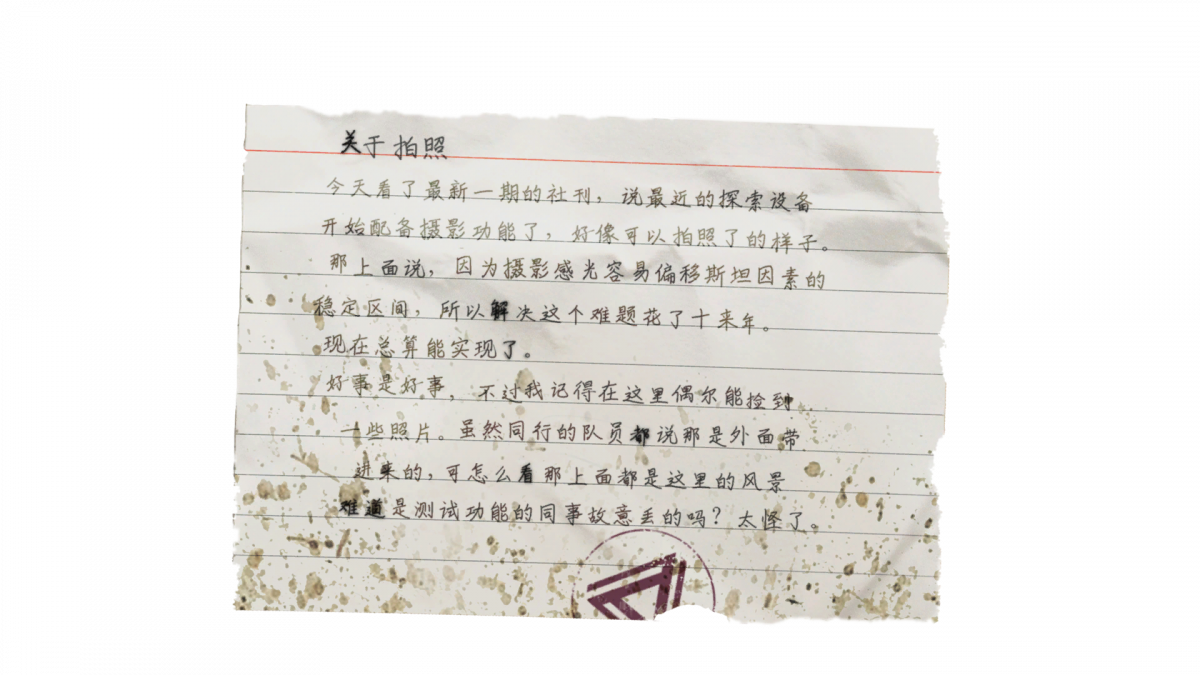 关于拍照
今天看了最新一期的社刊，说最近的探索设备
开始配备摄影功能了，好像可以拍照了的样子。
那上面说，因为摄影感光容易偏移斯坦因素的
稳定区间，所以解决这个难题花了十来年。
现在总算能实现了。
好事是好事，不过我记得在这里偶尔能捡到
一些照片。虽然同行的队员都说那是外面带
进来的，可怎么看那上面都是这里的风景
难道是测试功能的同事故意丢的吗？太怪了。